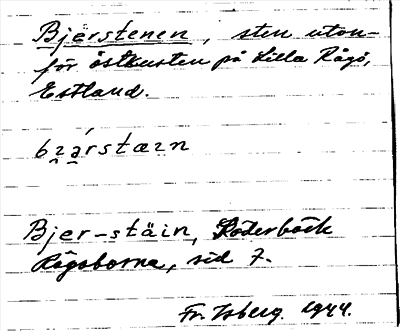 Bjärstenen, sten utan-
för östkusten på Lilla Rågö,
Estland.
Bjer-stäin, Söderbäck
Rågöborna, sid 7.
Fr. Isberg. 1944.